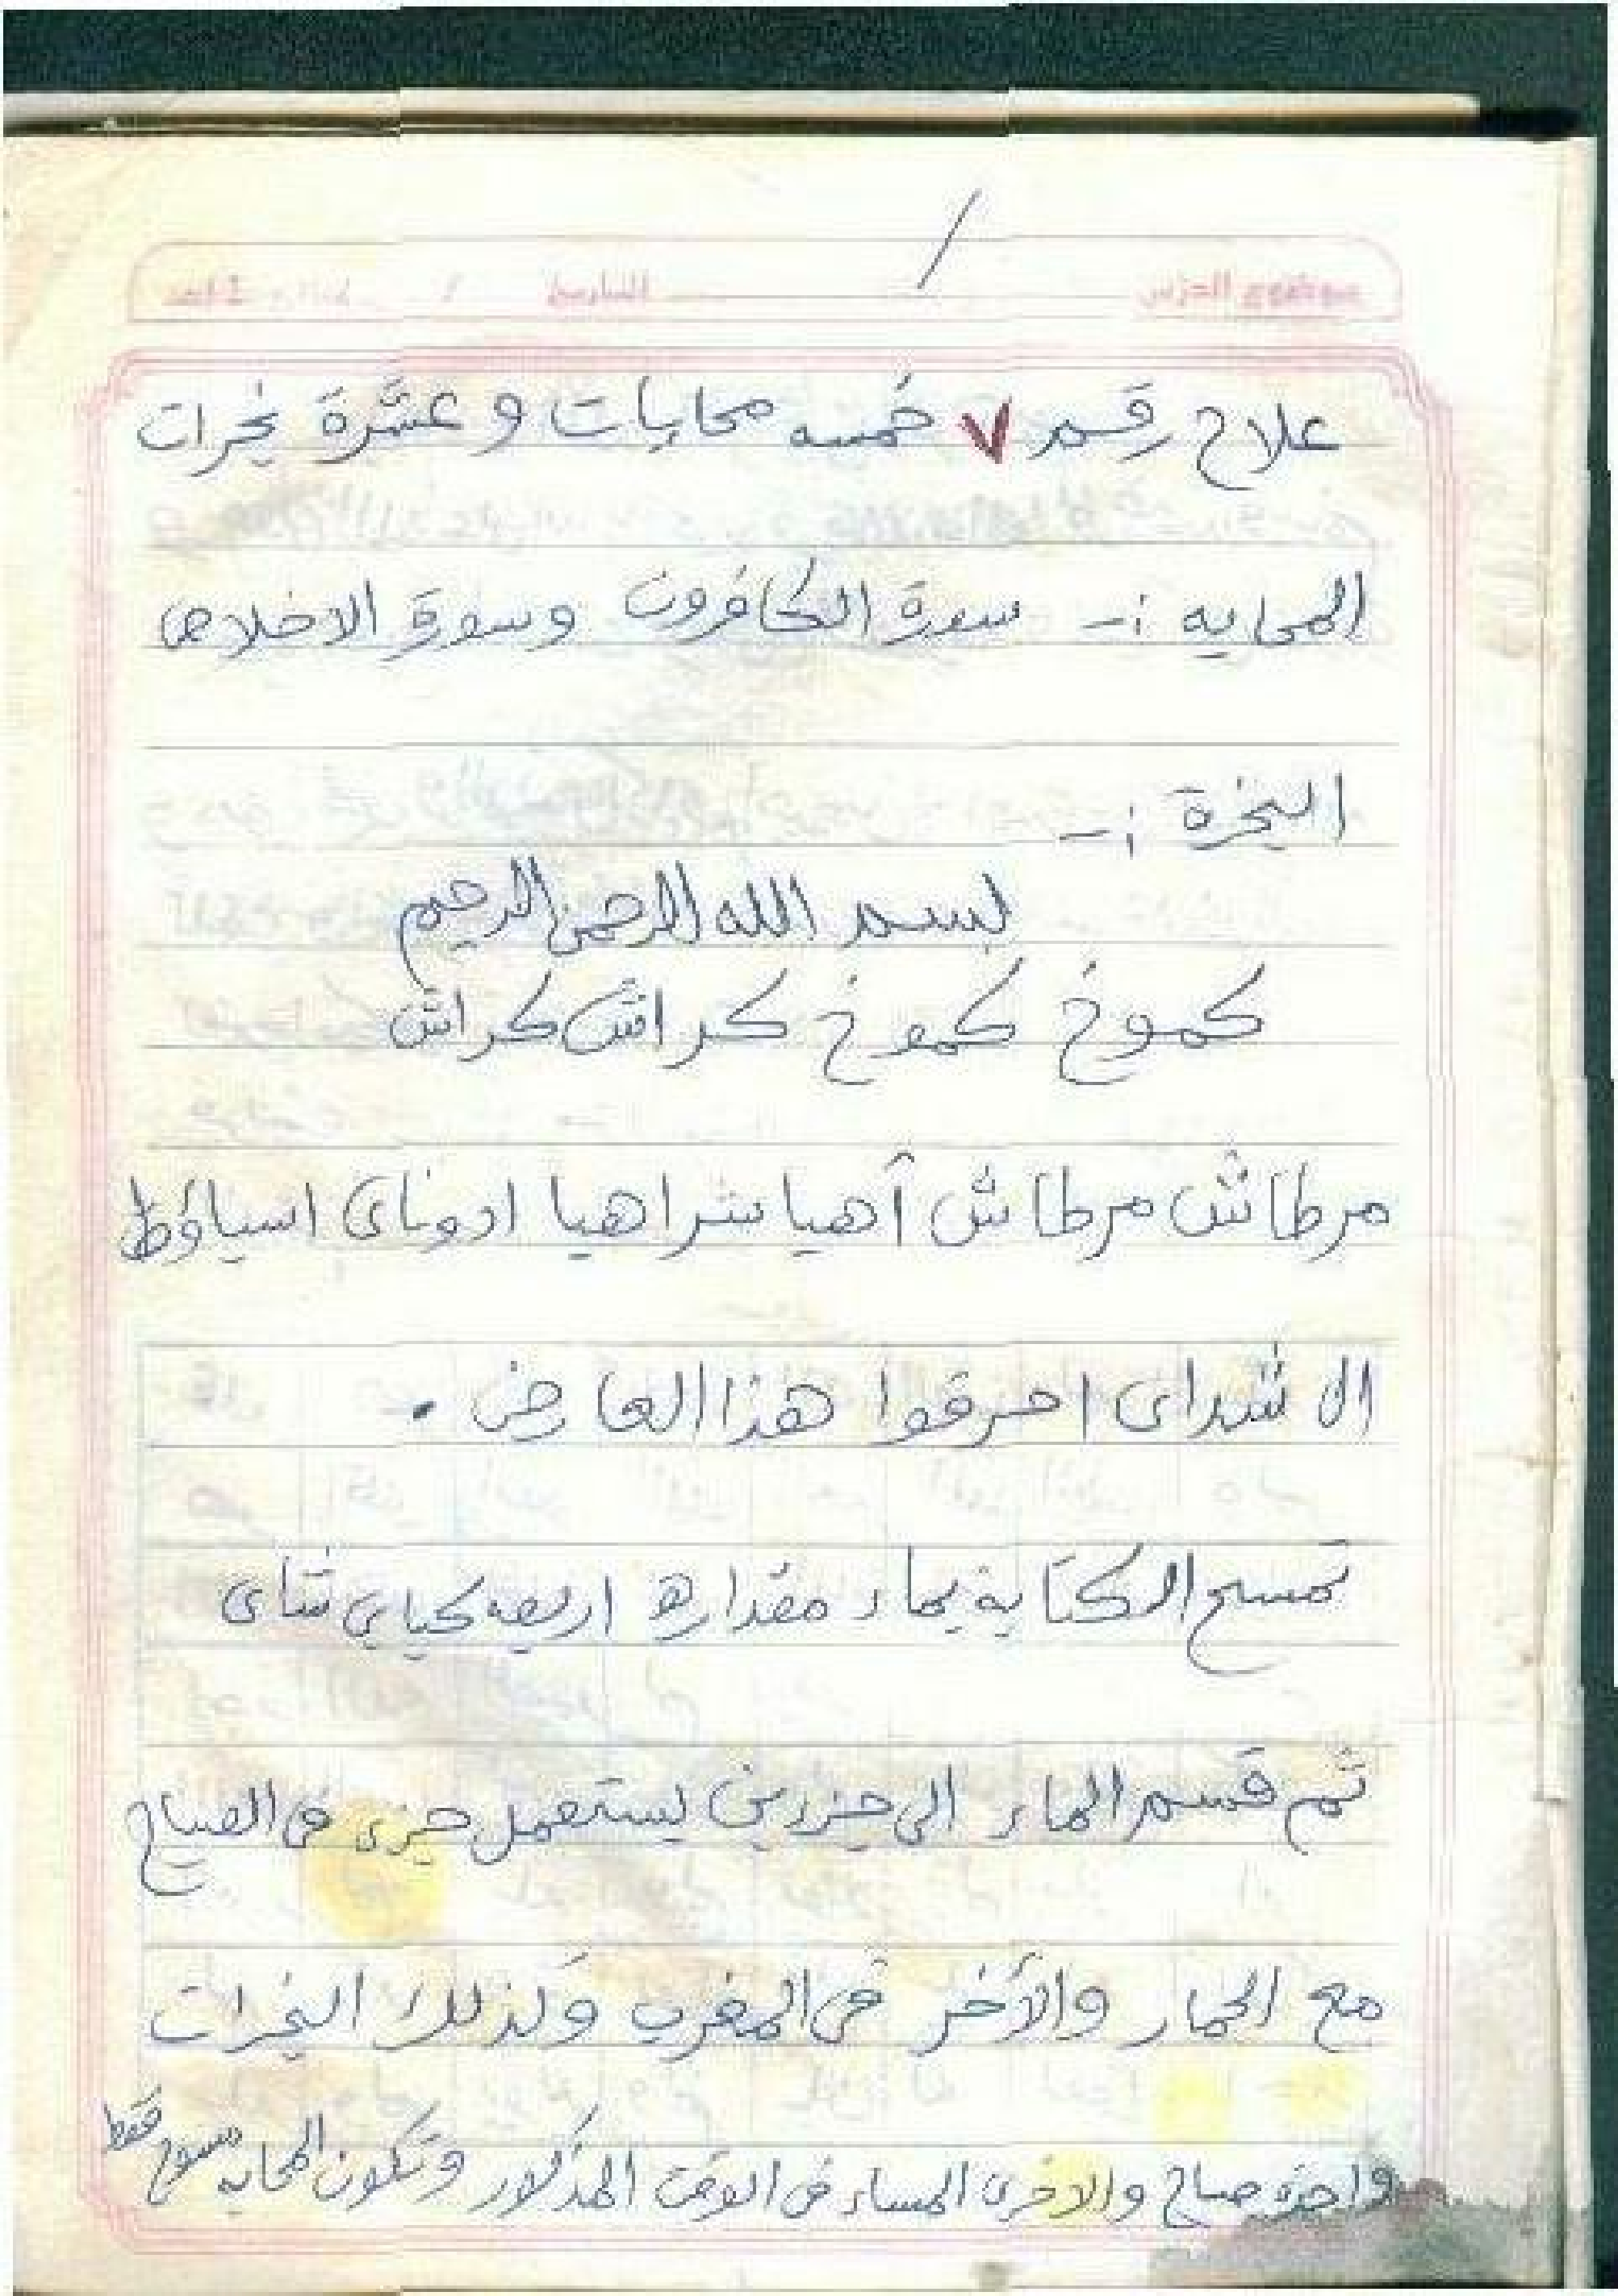 /
علاج رقم ٧ خمسه محايات و عشرة بخرات
المحايه :- سورة الكافرون وسورة الاخلاص
البخرة :-
بسم الله الرحمن الرحيم
كموخ كموخ كراش كراش
مرطاش مرطاش آهيا شراهيا ادوناى اسباؤط
ال شداى احرقوا هذا العارض .
تمسح الكتابة بماء مقداره اربعه كبابي شاى
ثم قسم الماء الى جزءين يستعمل جزى فى الصباح
مع الحمار والآخر فى المغرب وكذلك البخرات
واحدة صباح والاخرى المساء فى الوقت المذكور وتكون المحايه مسوح فقط